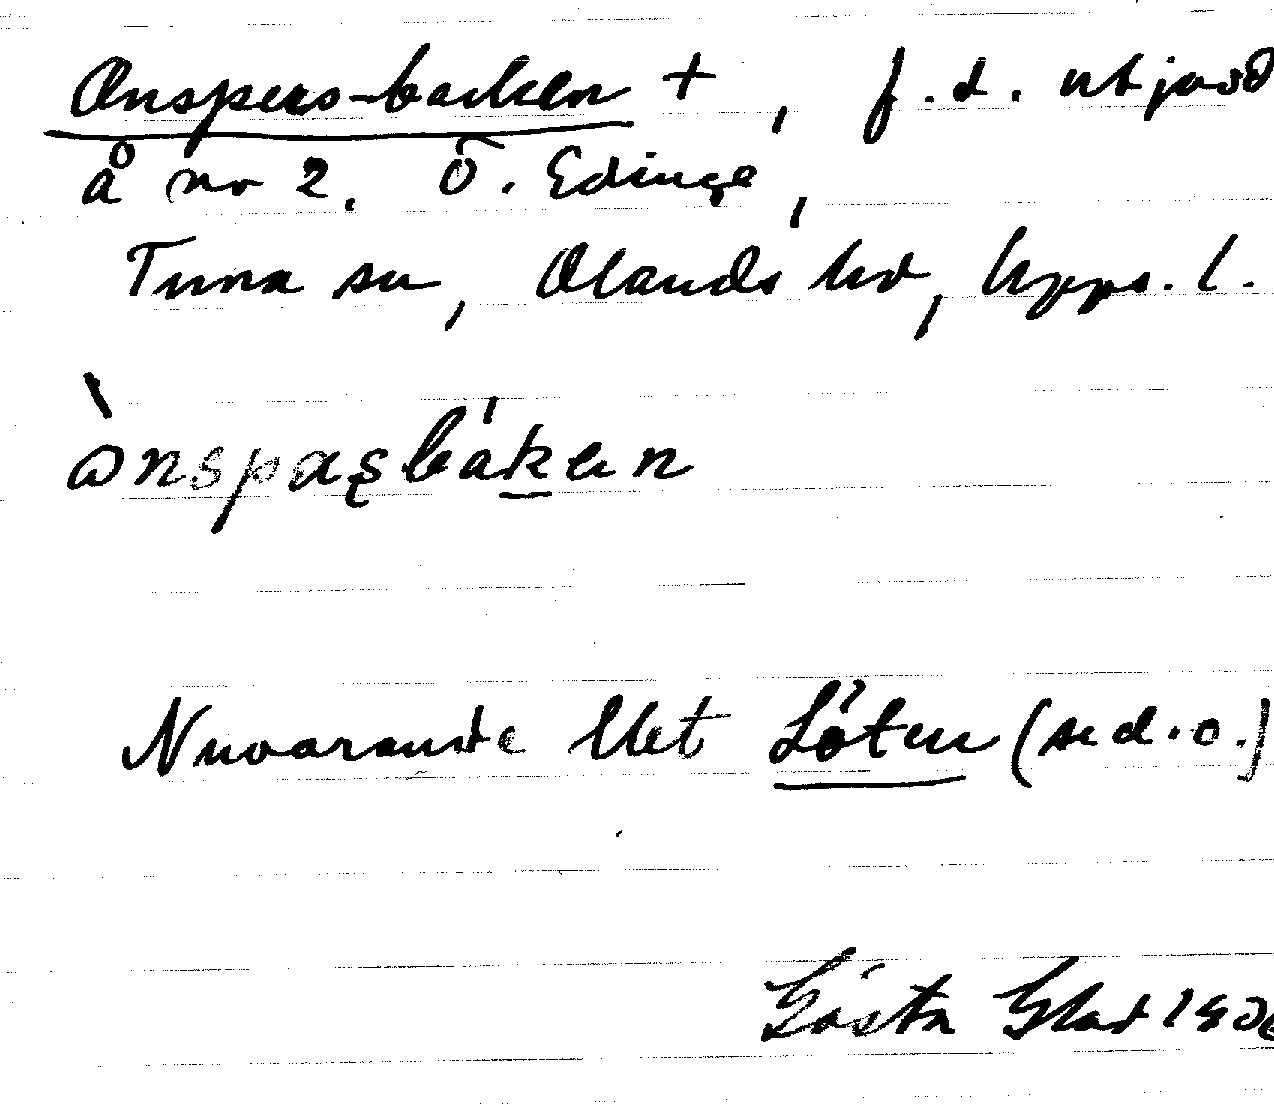 Onspers-backen +, f.d. utjord
å no 2. Ö. Edinge,
Tuna sn, Olands hd, Upps. l.
ònspaṣbáken
Nuvarande Uet Löten (se d.o.)
Gösta Glad